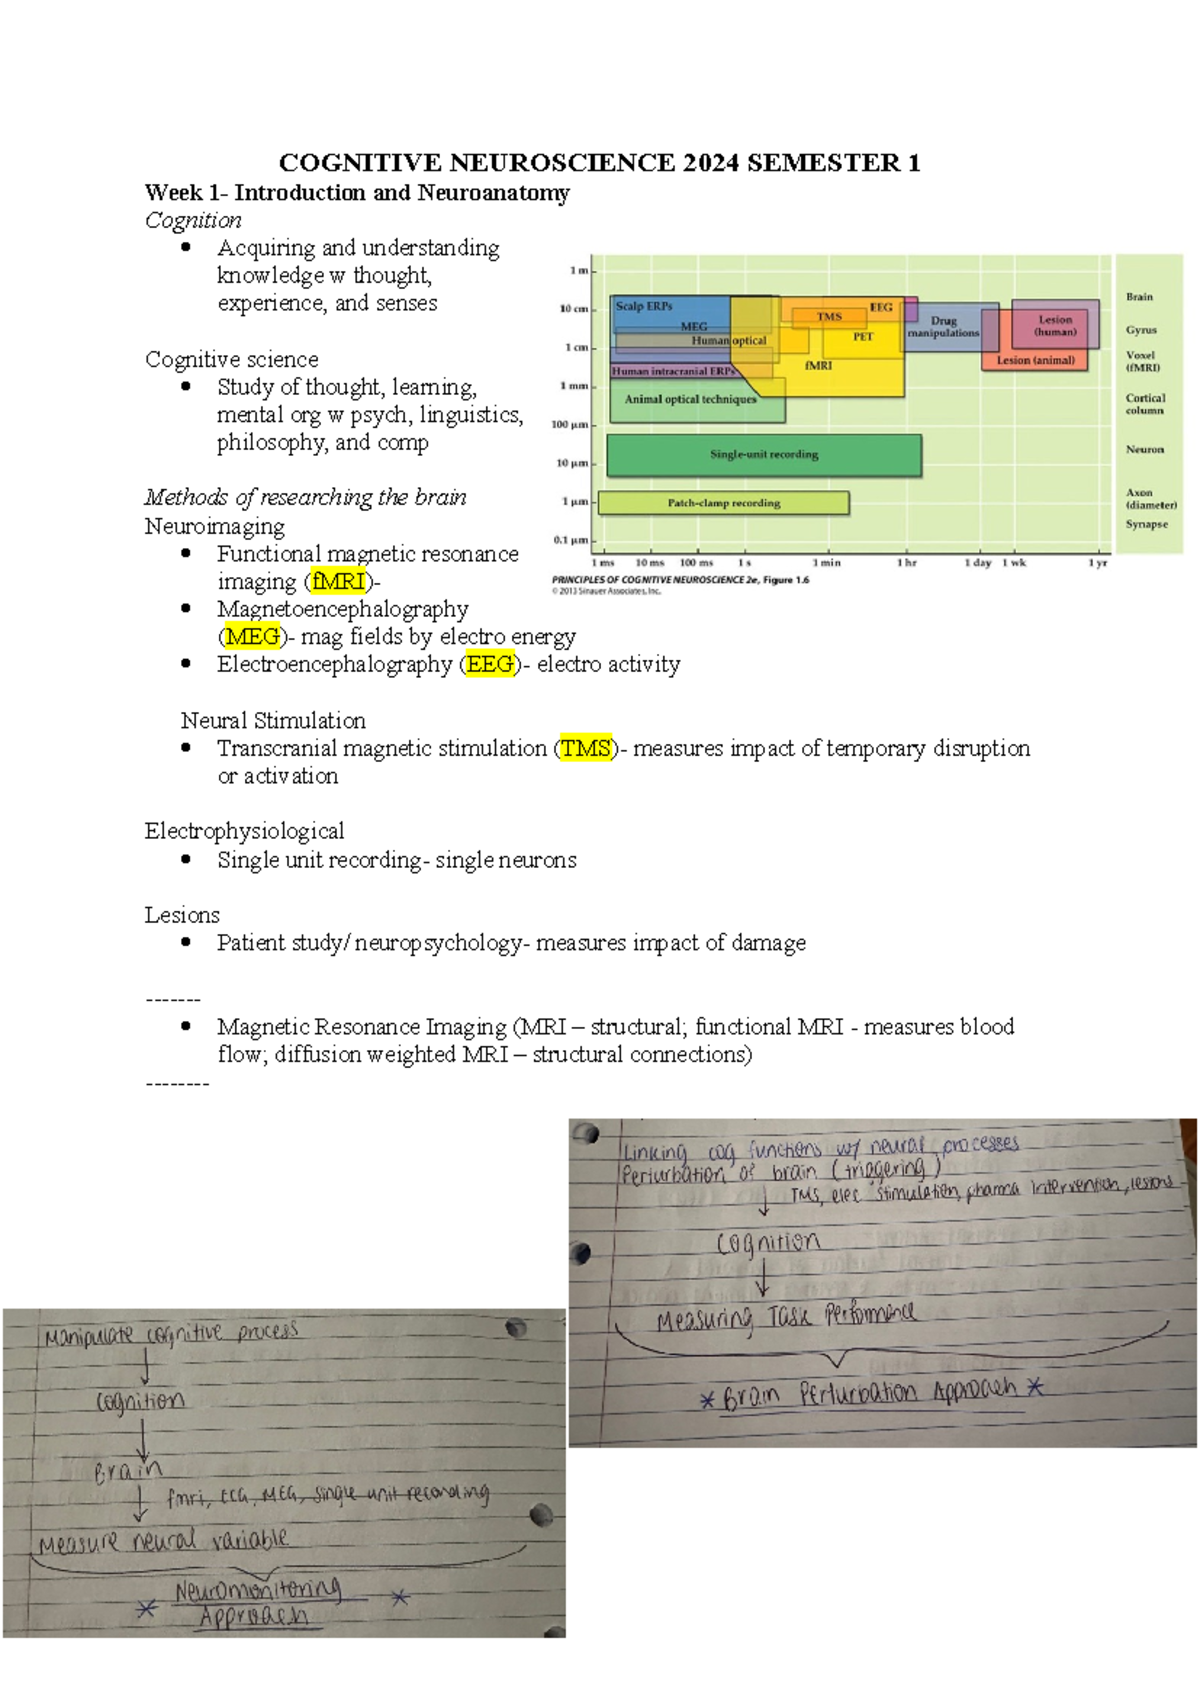 COGNITIVE NEUROSCIENCE 2024 SEMESTER 1
Week 1- Introduction and Neuroanatomy
Cognition
• Acquiring and understanding
knowledge w thought,
experience, and senses
Cognitive science
• Study of thought, learning,
mental org w psych, linguistics,
philosophy, and comp
Methods of researching the brain
Neuroimaging
• Functional magnetic resonance
imaging (fMRI)-
• Magnetoencephalography
(MEG)- mag fields by electro energy
• Electroencephalography (EEG)- electro activity
1 m
10 cm
1 cm
1 mm
100 µm
10 µm
1 µm
0.1 µm
Scalp ERPs
MEG
Human optical
Human intracranial ERPs
Animal optical techniques
TMS
EEG
PET
fMRI
Drug
manipulations
Lesion
(human)
Lesion (animal)
Single-unit recording
Patch-clamp recording
Brain
Gyrus
Voxel
(fMRI)
Cortical
column
Neuron
Axon
(diameter)
Synapse
1 ms 10 ms 100 ms 1 s 1 min 1 hr 1 day 1 wk 1 yr
PRINCIPLES OF COGNITIVE NEUROSCIENCE 2e, Figure 1.6
© 2013 Sinauer Associates, Inc.
Neural Stimulation
• Transcranial magnetic stimulation (TMS)- measures impact of temporary disruption
or activation
Electrophysiological
• Single unit recording- single neurons
Lesions
• Patient study/ neuropsychology- measures impact of damage
-------
• Magnetic Resonance Imaging (MRI – structural; functional MRI - measures blood
flow; diffusion weighted MRI – structural connections)
--------
Linking cog functions w/ neural processes
Perturbation of brain (triagering)
↓ TMS, elec stimulation, pharma intervention, lesions
Cognition
↓
Measuring Task Performance
* Brain Perturbation Approach *
Manipulate cognitive process
↓
Cognition
↓
Brain
↓ fmri, EEG, MEG, single unit recording
Measure neural variable
* Neuromonitoring *
Approach